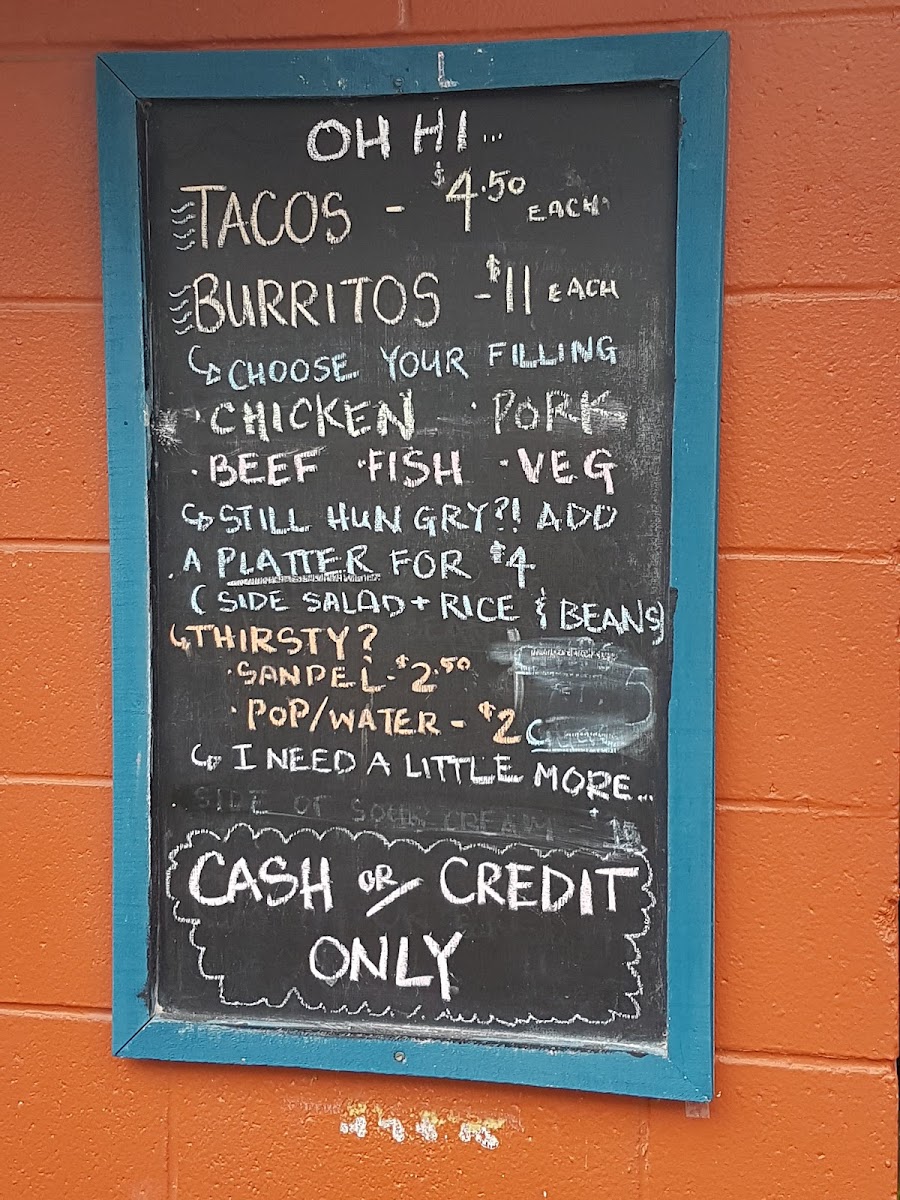 OH HI...
TACOS - $4.50 EACH
BURRITOS - $11 EACH
CHOOSE YOUR FILLING
· CHICKEN · PORK
· BEEF · FISH · VEG
STILL HUNGRY?! ADD
A PLATTER FOR $4
(SIDE SALAD + RICE & BEANS)
THIRSTY?
· SANPEL - $2.50
· POP/WATER - $2
I NEED A LITTLE MORE...
SIDE OF SOUR CREAM -
CASH OR CREDIT
ONLY